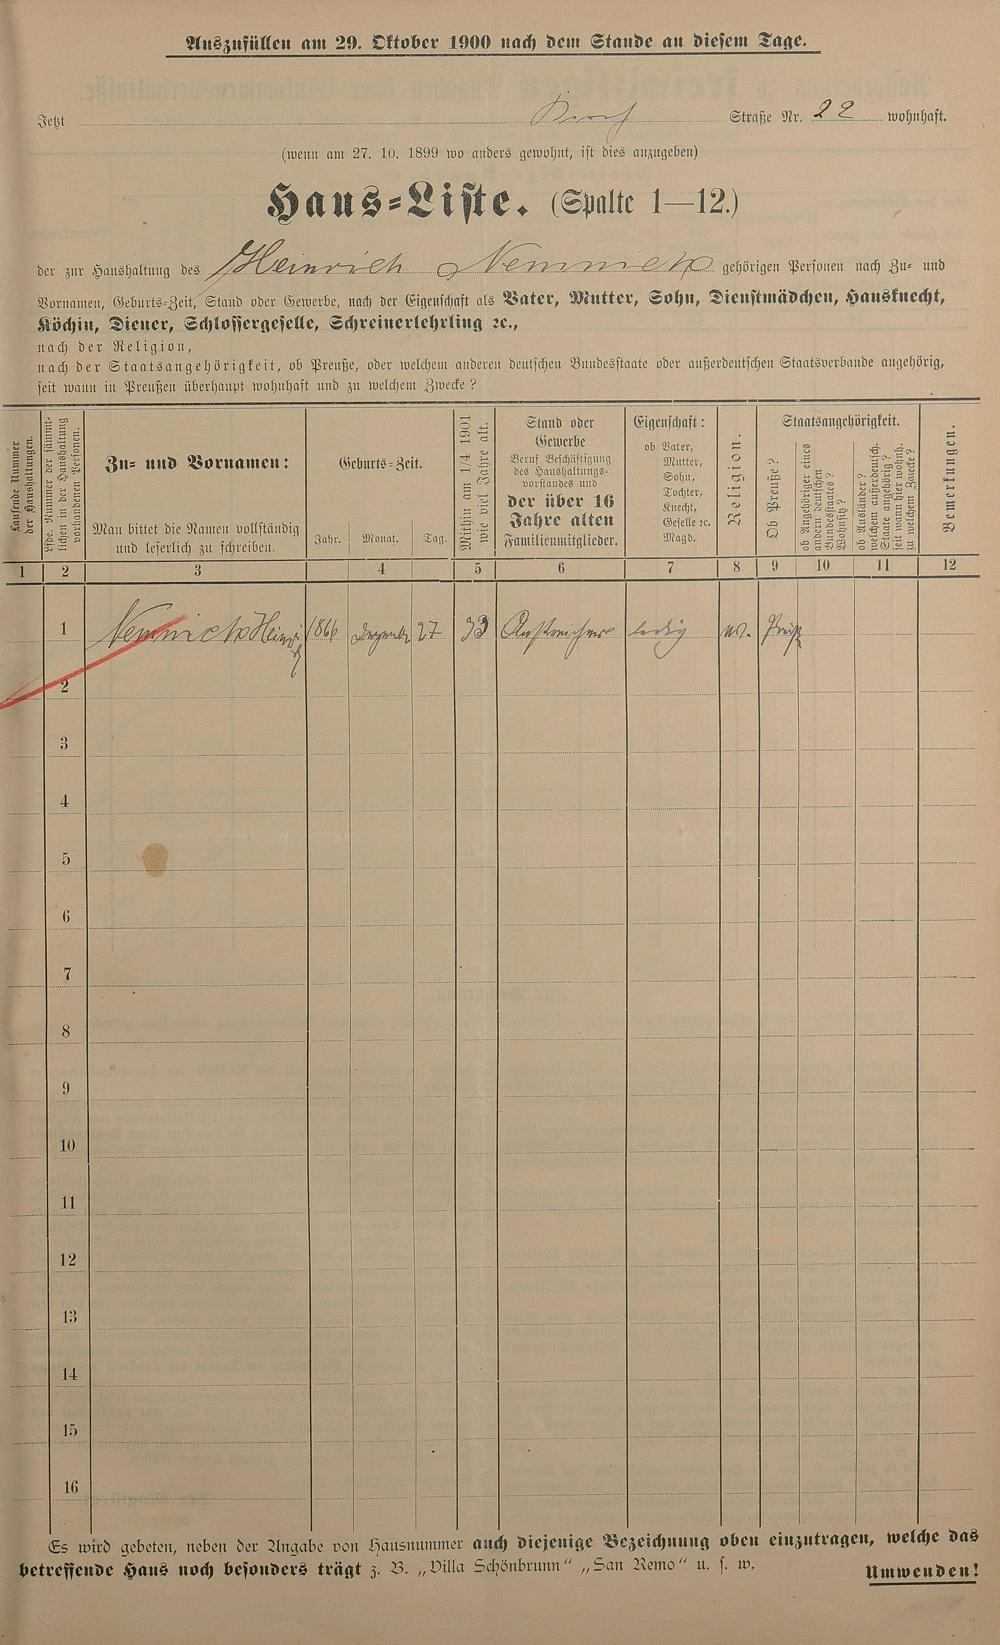 Auszufüllen am 29. Oktober 1900 nach dem Stande an diesem Tage.
Jetzt Straße Nr. 22 wohnhaft.
(wenn am 27. 10. 1899 wo anders gewohnt, ist dies anzugeben)
Haus-Liste. (Spalte 1—12.)
der zur Haushaltung des Heinrich Nemnich gehörigen Personen nach Zu- und
Vornamen, Geburts-Zeit, Stand oder Gewerbe, nach der Eigenschaft als Vater, Mutter, Sohn, Dienstmädchen, Hausknecht,
Köchin, Diener, Schlossergeselle, Schreinerlehrling ꝛc.,
nach der Religion,
nach der Staatsangehörigkeit, ob Preuße, oder welchem anderen deutschen Bundesstaate oder außerdeutschen Staatsverbande angehörig,
seit wann in Preußen überhaupt wohnhaft und zu welchem Zwecke?
Laufende Nummer
der Haushaltungen.
Lfde. Nummer der sämmt-
lichen in der Haushaltung
vorhandenen Personen.
Zu- und Vornamen:
Man bittet die Namen vollständig
und leserlich zu schreiben.
Geburts-Zeit.
Jahr. Monat. Tag.
Mithin am 1/4 1901
wie viel Jahre alt.
Stand oder
Gewerbe
Beruf Beschäftigung
des Haushaltungs-
vorstandes und
der über 16
Jahre alten
Familienmitglieder.
Eigenschaft:
ob Vater,
Mutter,
Sohn,
Tochter,
Knecht,
Geselle ꝛc.
Magd.
Religion.
Staatsangehörigkeit.
Ob Preuße?
ob Angehöriger eines
andern deutschen
Bundesstaates?
Wohnsitz?
ob Ausländer?
welchem außerdeutsch.
Staate angehörig?
seit wann hier wohnh.
zu welchem Zwecke?
Bemerkungen.
1 2 3 4 5 6 7 8 9 10 11 12
1 Nemnich Heinrich 1866 Dezember 27 33 Anstreicher ledig ev. Preuße
2
3
4
5
6
7
8
9
10
11
12
13
14
15
16
Es wird gebeten, neben der Angabe von Hausnummer auch diejenige Bezeichnung oben einzutragen, welche das
betreffende Haus noch besonders trägt z. B. „Villa Schönbrunn“ „San Remo“ u. s. w.
Umwenden!